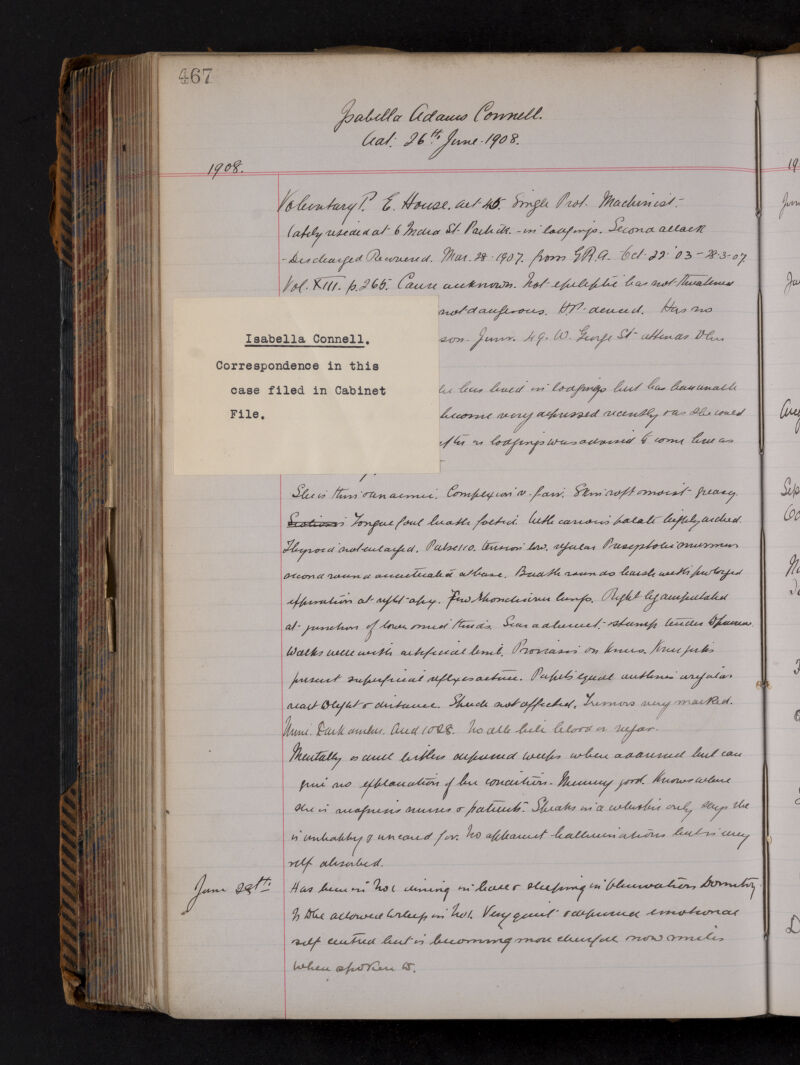 467
Isabella Adams Connell.
Aat: 26th June 1908.
1908.
Voluntary P. E. House. aet 45. Single Prot. Machinist -
lately resided at 6 India St. Partick - in lodgings. Second attack
- Discharged Recovered. Mar. 28 1907. from G.R.A. Oct 22 '03 - 28.3.07
Vol. XIII. p. 265. Cause unknown. Not epileptic has not threatened
not dangerous. H.P. denied. Has no
son. Junr. 49. W. George St.
Isabella Connell.
Correspondence in this
case filed in Cabinet
File.
he has lived in lodgings but has been unable
become very depressed recently & as she could
in lodgings was advised to come here as
She is thin & anaemic. Complexion fair. Skin soft & moist greasy.
Tongue foul breath foetid. Teeth carious palate highly arched.
Thyroid not enlarged. Pulse 110. tension low. regular Presystolic murmur
second sound accentuated at base. Breath sounds harsh with prolonged
expiration at right apex. Few Rhonchi over lungs. Right leg amputated
at junction of lower & mid thirds. Scar adherent, stump tender & painful
Walks well with artificial limb. Psoriasis on knees. Knee jerks
present superficial reflexes active. Pupils equal outlines irregular
react to light & distance. Speech not affected. Tremors very marked.
Urine. Dark amber. Acid 1028. No alb bile blood or sugar.
Mentally is dull listless depressed weeps when addressed but can
give no explanation of her condition. Memory good. Knows where
she is recognises nurses & patients. Speaks in a whisper only says she
is unhappy & uncared for. No apparent hallucinations but is very
self absorbed.
June 28th: Has been in No 1 dining in house & sleeping in Observation Dormitory
Is to be allowed to sleep in No 1. Very quiet & depressed emotional
self centred but is becoming more cheerful & now smiles
when spoken to.